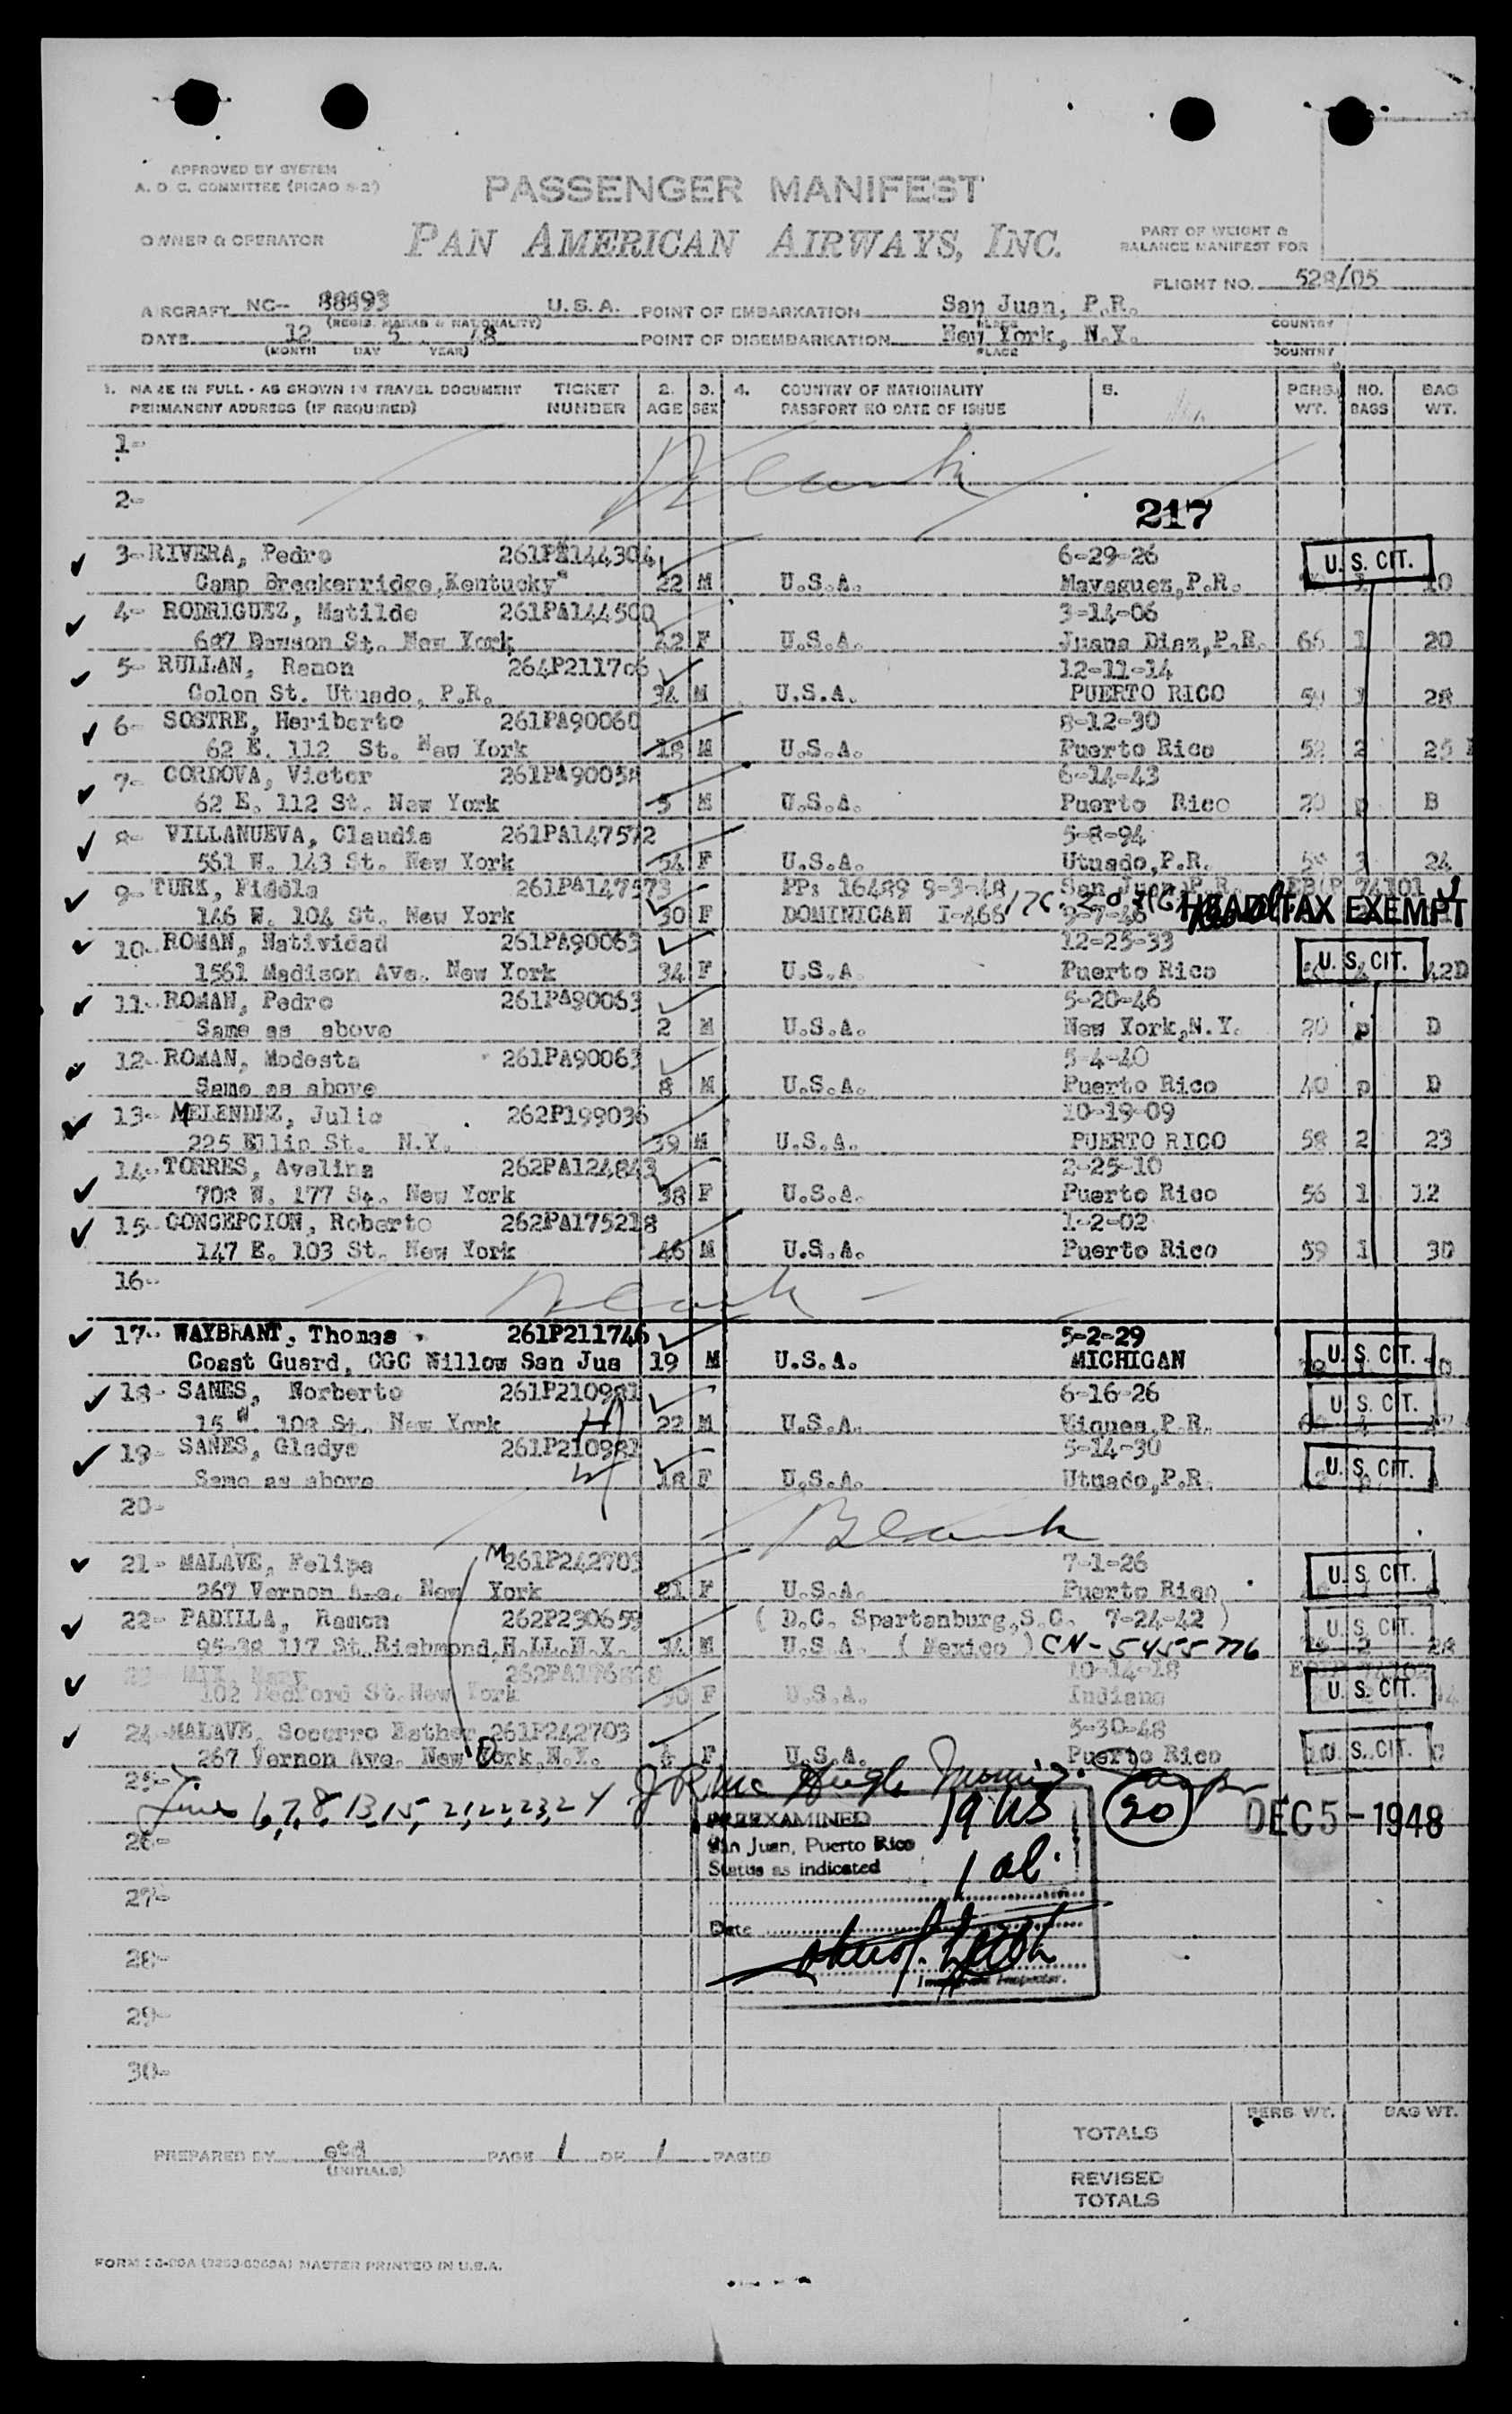 APPROVED BY SYSTEM
A. O. C. COMMITTEE (PICAO S-2)
PASSENGER MANIFEST
OWNER & OPERATOR
PAN AMERICAN AIRWAYS, INC.
PART OF WEIGHT &
BALANCE MANIFEST FOR
FLIGHT NO. 528/05
AIRCRAFT NC-- 88893 U.S.A. POINT OF EMBARKATION San Juan, P.R.
(REGIS. MARKS & NATIONALITY) PLACE COUNTRY
DATE 12 5 48 POINT OF DISEMBARKATION New York, N.Y.
(MONTH DAY YEAR) PLACE COUNTRY
1. NAME IN FULL - AS SHOWN IN TRAVEL DOCUMENT TICKET 2. 3. 4. COUNTRY OF NATIONALITY 5. PERS. NO. BAG
PERMANENT ADDRESS (IF REQUIRED) NUMBER AGE SEX PASSPORT NO DATE OF ISSUE WT. BAGS WT.
1-
Blank
2-
217
3- RIVERA, Pedro 261PA144304 6-29-26 U.S. CIT.
Camp Breckenridge, Kentucky 22 M U.S.A. Mayaguez, P.R. 1 10
4- RODRIGUEZ, Matilde 261PA144500 3-14-06
687 Dawson St. New York 42 F U.S.A. Juana Diaz, P.R. 66 1 20
5- RULLAN, Ramon 264P211706 12-11-14
Colon St. Utuado, P.R. 34 M U.S.A. PUERTO RICO 1 28
6- SOSTRE, Heriberto 261PA90060 8-12-30
62 E. 112 St. New York 18 M U.S.A. Puerto Rico 52 2 25
7- CORDOVA, Victor 261PA90058 6-14-43
62 E. 112 St. New York 5 M U.S.A. Puerto Rico 20 p B
8- VILLANUEVA, Claudia 261PA147572 5-8-94
561 W. 143 St. New York 54 F U.S.A. Utuado, P.R. 3 24
9- TURK, Fiddla 261PA147573 PP: 16489 9-3-48 San Juan, P.R. 74101
146 W. 104 St. New York 30 F DOMINICAN I-466 9-7-48 HEAD TAX EXEMPT
10- ROMAN, Natividad 261PA90063 12-25-33 U.S. CIT.
1561 Madison Ave. New York 34 F U.S.A Puerto Rico 42D
11- ROMAN, Pedro 261PA90063 5-20-46
Same as above 2 M U.S.A. New York, N.Y. 20 p D
12- ROMAN, Modesta 261PA90063 5-4-40
Same as above 8 M U.S.A. Puerto Rico 40 p D
13- MELENDEZ, Julio 262P199036 10-19-09
225 Ellip St. N.Y. 39 M U.S.A. PUERTO RICO 58 2 23
14- TORRES, Avelina 262PA124843 2-25-10
702 W. 177 St. New York 38 F U.S.A. Puerto Rico 56 1 12
15- CONCEPCION, Roberto 262PA175218 1-2-02
147 E. 103 St. New York 46 M U.S.A. Puerto Rico 59 1 30
16-
Blank
17- WAYBRANT, Thomas 261P211746 5-2-29 U.S. CIT.
Coast Guard, CGC Willow San Jua 19 M U.S.A. MICHIGAN
18- SANES, Norberto 261P210981 6-16-26 U.S. CIT.
15 W. 102 St. New York H 22 M U.S.A. Viques, P.R.
19- SANES, Gladys 261P210981 5-14-30 U.S. CIT.
Same as above W 18 F U.S.A. Utuado, P.R.
20-
Blank
21- MALAVE, Felipa M 261P242703 7-1-26 U.S. CIT.
267 Vernon Ave. New York 21 F U.S.A. Puerto Rico
22- PADILLA, Ramon 262P230659 ( D.C. Spartanburg, S.C. 7-24-42 ) U.S. CIT.
95-38 117 St. Richmond, H.LL.N.Y. 34 M U.S.A. ( Mexico ) CN-5455776 28
23- MIX, Mary 262PA176828 10-14-18
102 Bedford St. New York 30 F U.S.A. Indiana U.S. CIT.
24- MALAVE, Socorro Esther 261P242703 5-30-48
267 Vernon Ave. New York, N.Y. F U.S.A. Puerto Rico U.S. CIT.
25-
Lines 6,7,8,13,15, 21,22,23,24
19 US 20 DEC 5-1948
PREEXAMINED
26- San Juan, Puerto Rico
Status as indicated 1 al.
27-
Date
28-
Immigrant Inspector.
29-
30-
TOTALS PERS. WT. BAG WT.
PREPARED BY etd PAGE 1 OF 1 PAGES
(INITIALS)
REVISED
TOTALS
MASTER PRINTED IN U.S.A.